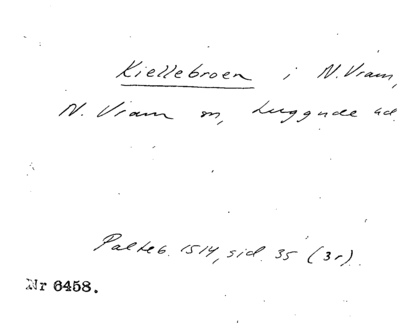 Kiellebroen i N. Vram,
N. Vram sn, Luggude hd.
Palteb. 1514, sid. 35 (3r).
Nr 6458.